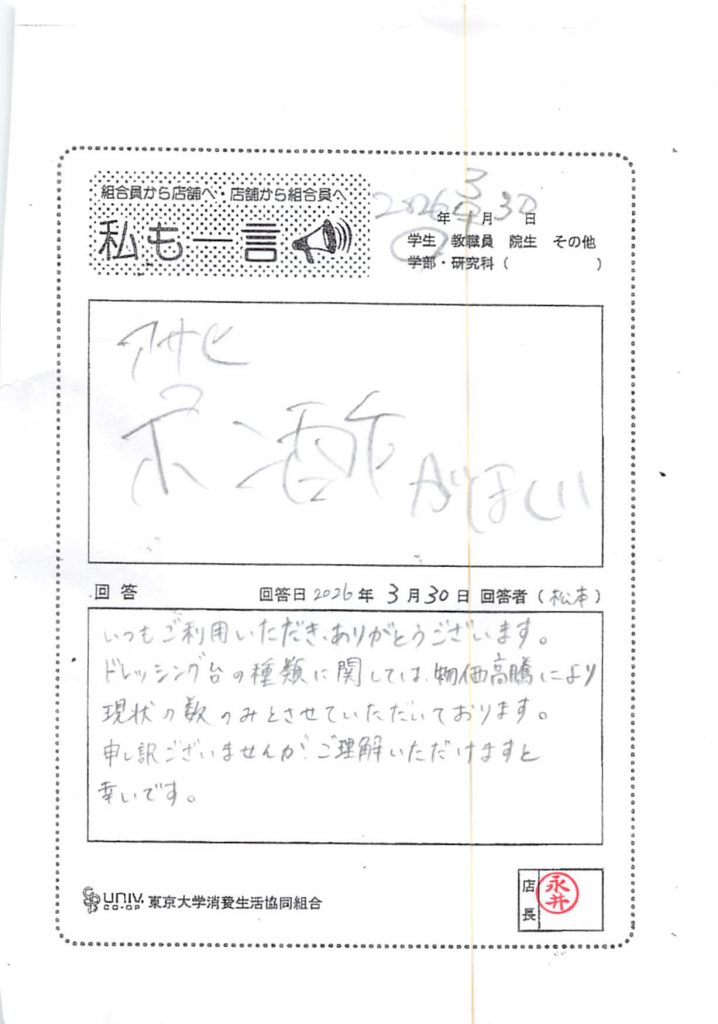 組合員から店舗へ・店舗から組合員へ
私も一言
2026年3月30日
学生 教職員 院生 その他
学部・研究科( )
アサヒ
ポン酢
がほしい
回答 回答日2026年3月30日 回答者(松本)
いつもご利用いただき、ありがとうございます。
ドレッシング台の種類に関しては、物価高騰により
現状の数のみとさせていただいております。
申し訳ございませんが、ご理解いただけますと
幸いです。
UNIV. CO-OP 東京大学消費生活協同組合
店長 永井